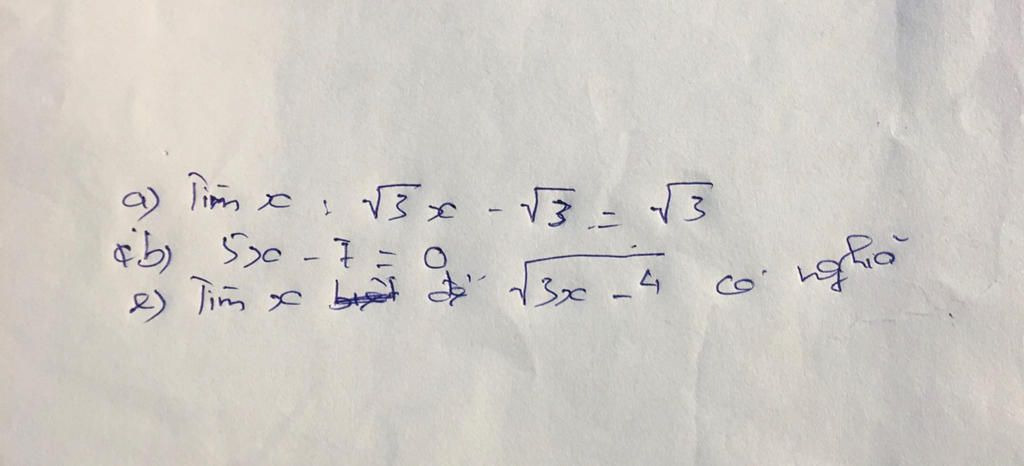 a) Tìm x : √3 x - √3 = √3
b) 5x - 7 = 0
c) Tìm x để √(3x - 4) có nghĩa